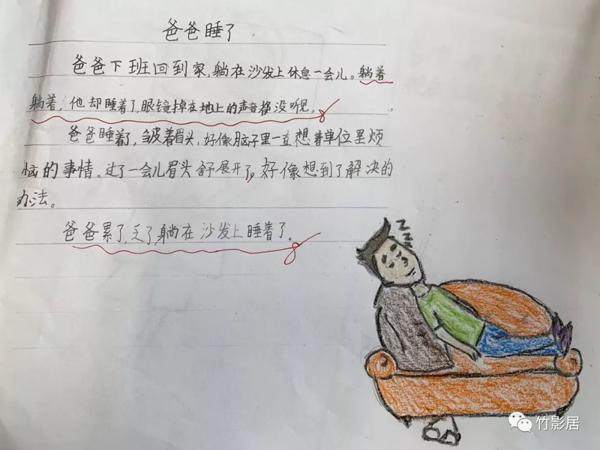 爸爸睡了
爸爸下班回到家,躺在沙发上休息一会儿。躺着
躺着,他却睡着了,眼镜掉在地上的声音都没听见。
爸爸睡着了,皱着眉头,好像脑子里一直想着单位里烦
恼的事情。过了一会儿眉头舒展开了,好像想到了解决的
办法。
爸爸累了,乏了,躺在沙发上睡着了。
zzz
竹影居